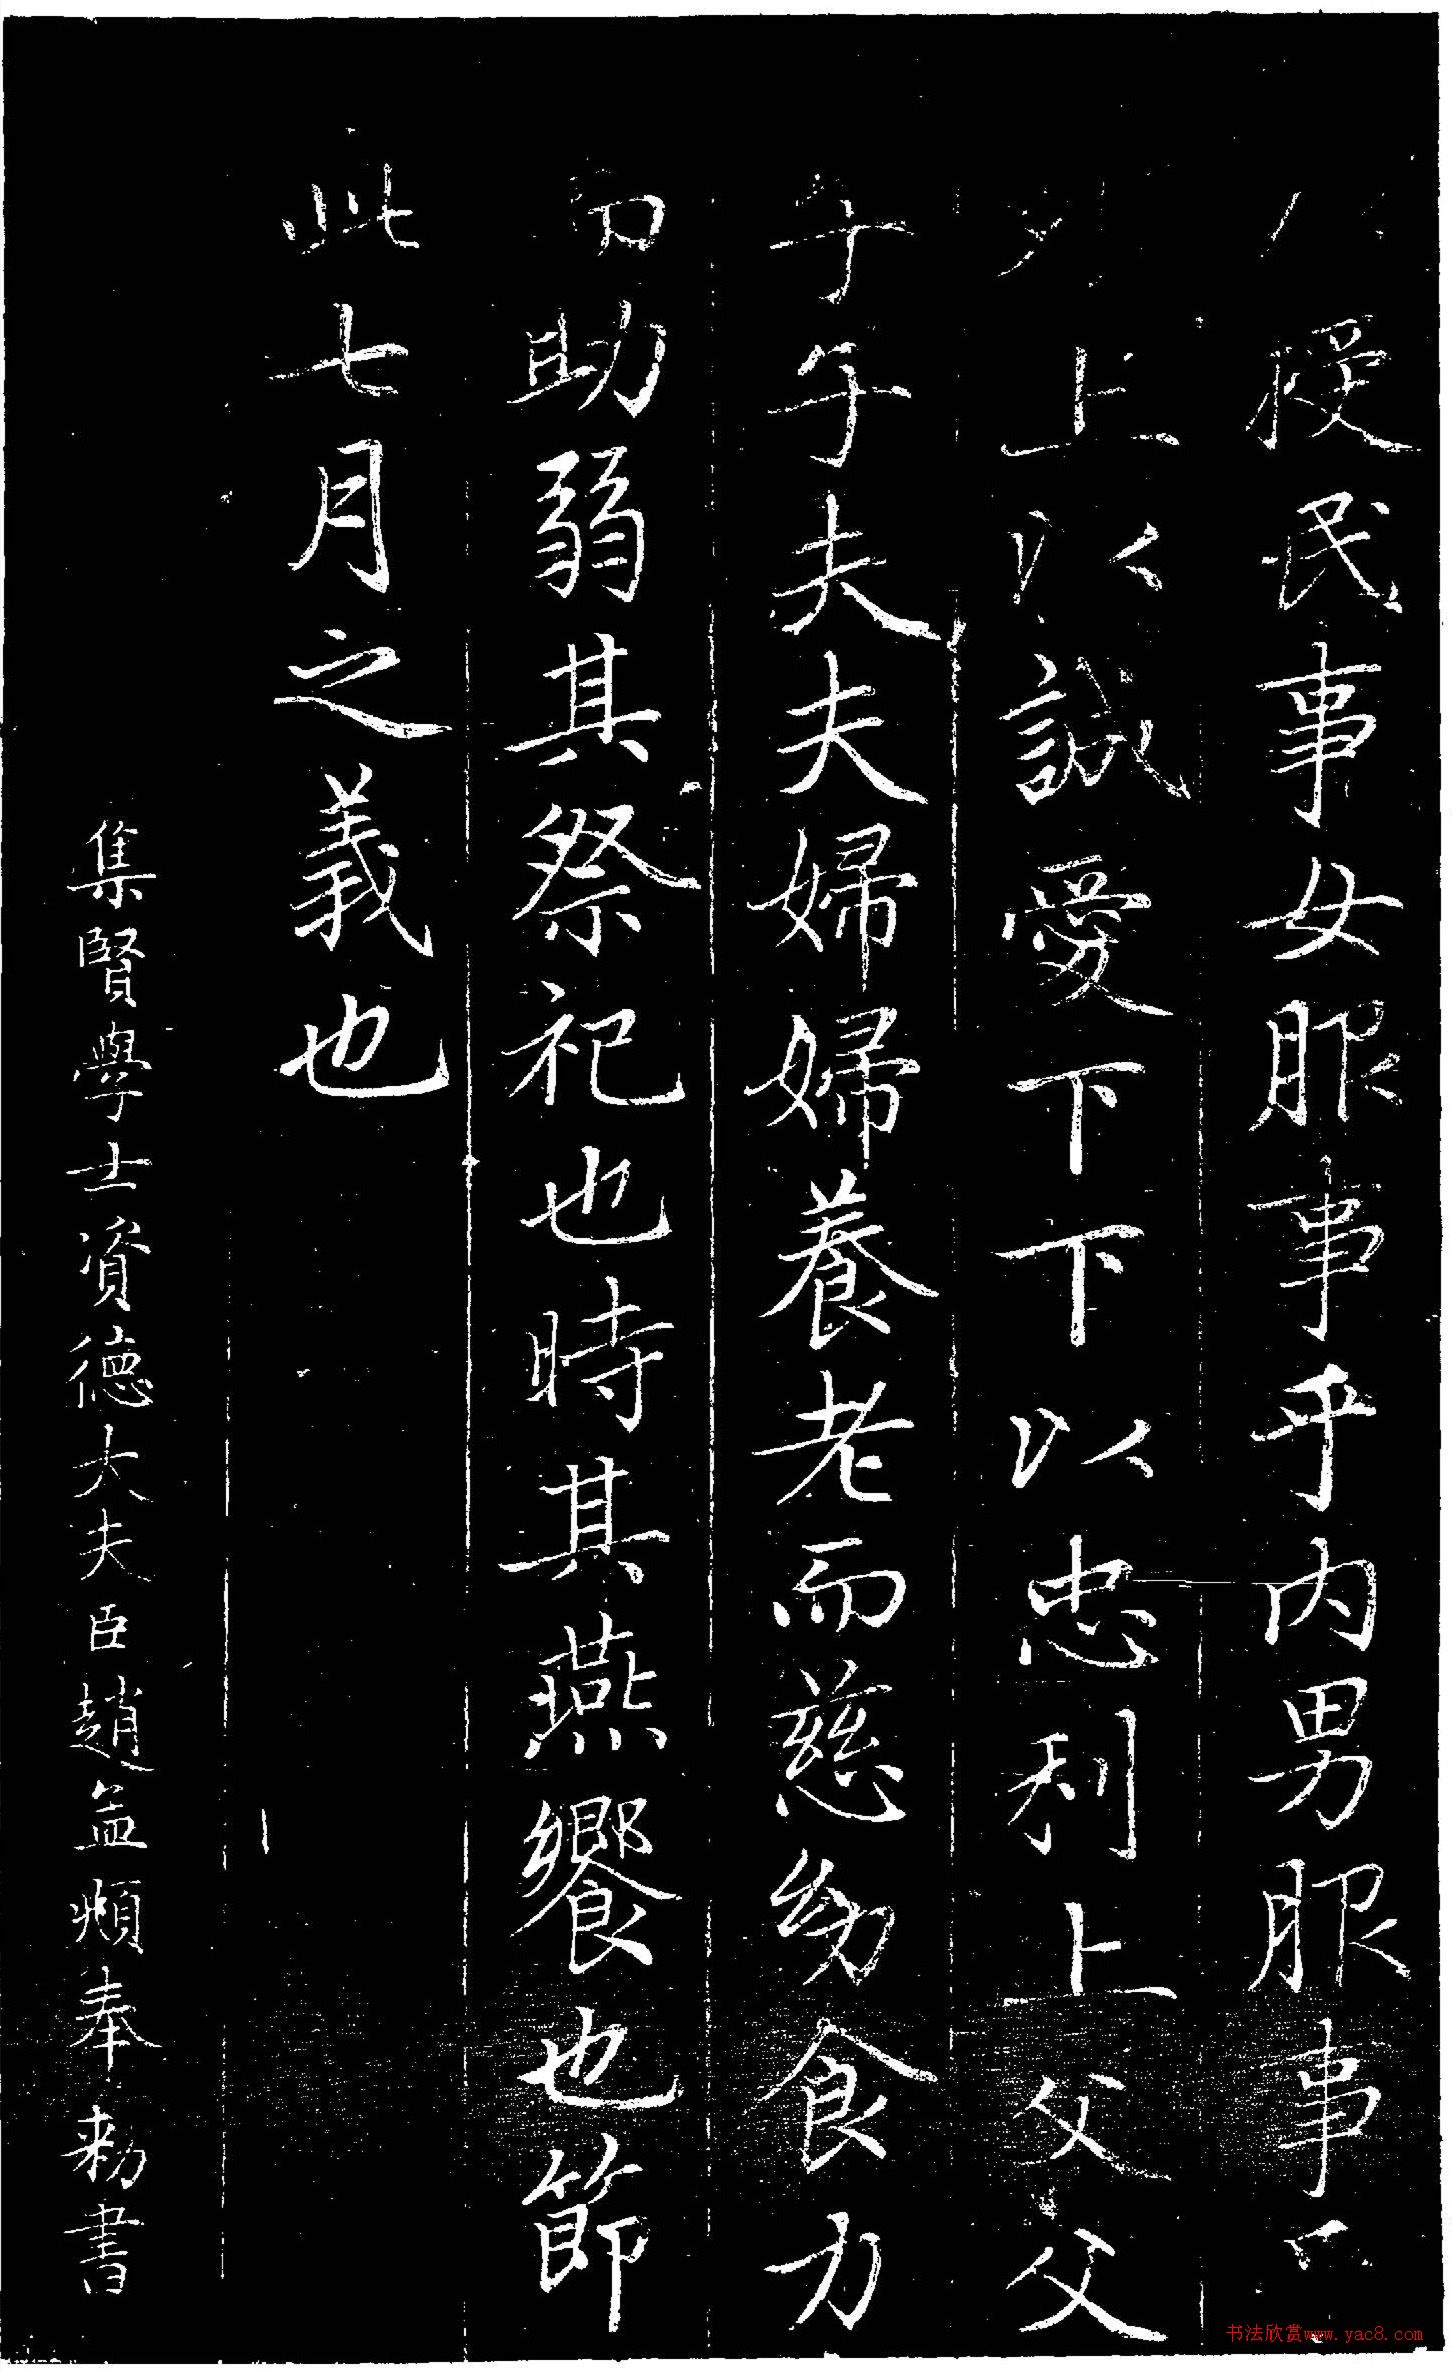 授民事女服事乎内男服事乎
上以誠愛下下以忠利上父父
子子夫夫婦婦養老而慈幼食力
而助弱其祭祀也時其燕饗也節
此七月之義也
集賢學士資德大夫臣趙孟頫奉勑書
书法欣赏www.yac8.com